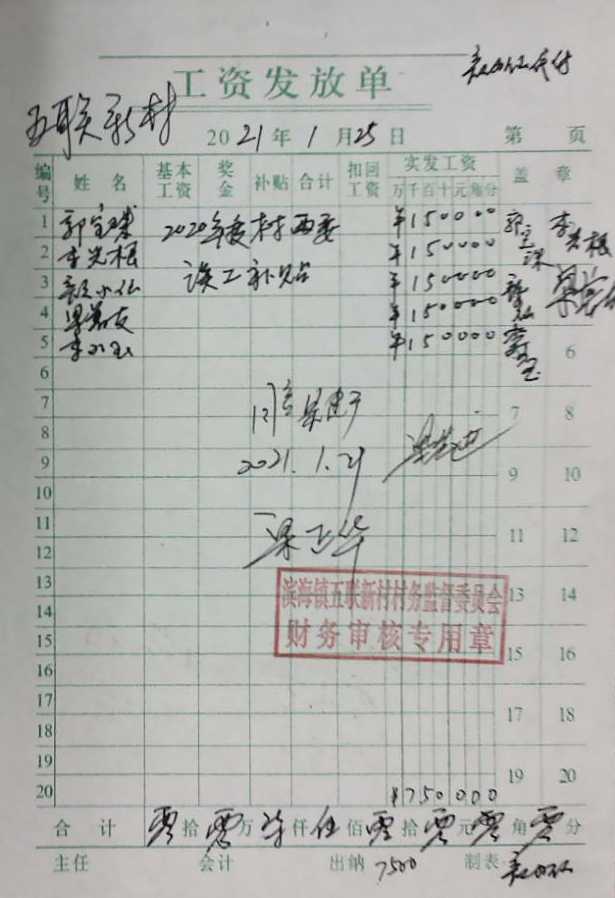 工资发放单
五联新村
2021年1月25日 第 页
编号 姓名 基本工资 奖金 补贴 合计 扣回工资 实发工资 盖章
万千百十元角分
1 郭宝珠 2020年度村两委 ¥150000
2 李光根 误工补贴 ¥150000 李光根
3 ¥150000
4 ¥150000
5 ¥150000
6 6
7 同意 7 8
8
9 2021.1.21 9 10
10
11 梁正华 11 12
12
13 滨海镇五联新村村务监督委员会 13 14
14 财务审核专用章
15 15 16
16
17 17 18
18
19 19 20
20 ¥750000
合计 零拾零万柒仟伍佰零拾零元零角零分
主任 会计 出纳 7500 制表